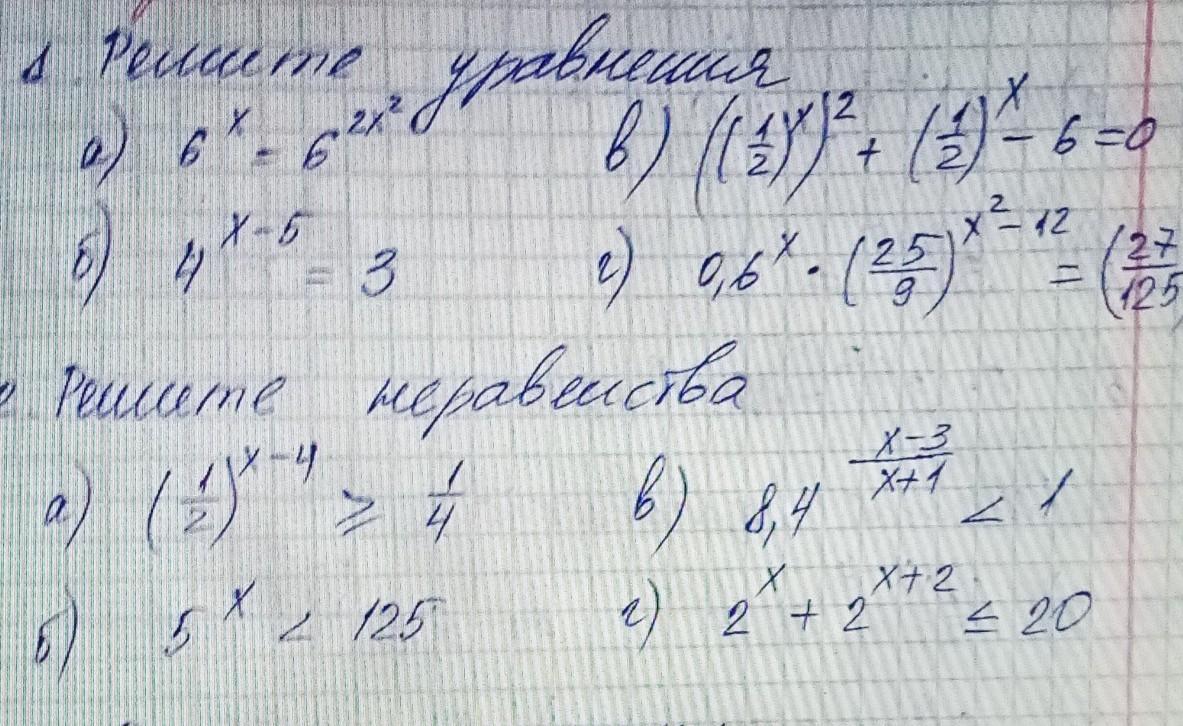 1 Решите уравнения
а) 6^x = 6^{2x^2} в) ((1/2)^x)^2 + (1/2)^x - 6 = 0
б) 4^{x-5} = 3 г) 0,6^x · (25/9)^{x^2-12} = (27/125)
Решите неравенства
а) (1/2)^{x-4} ≥ 1/4 в) 8,4^{(x-3)/(x+1)} < 1
б) 5^x < 125 г) 2^x + 2^{x+2} ≤ 20